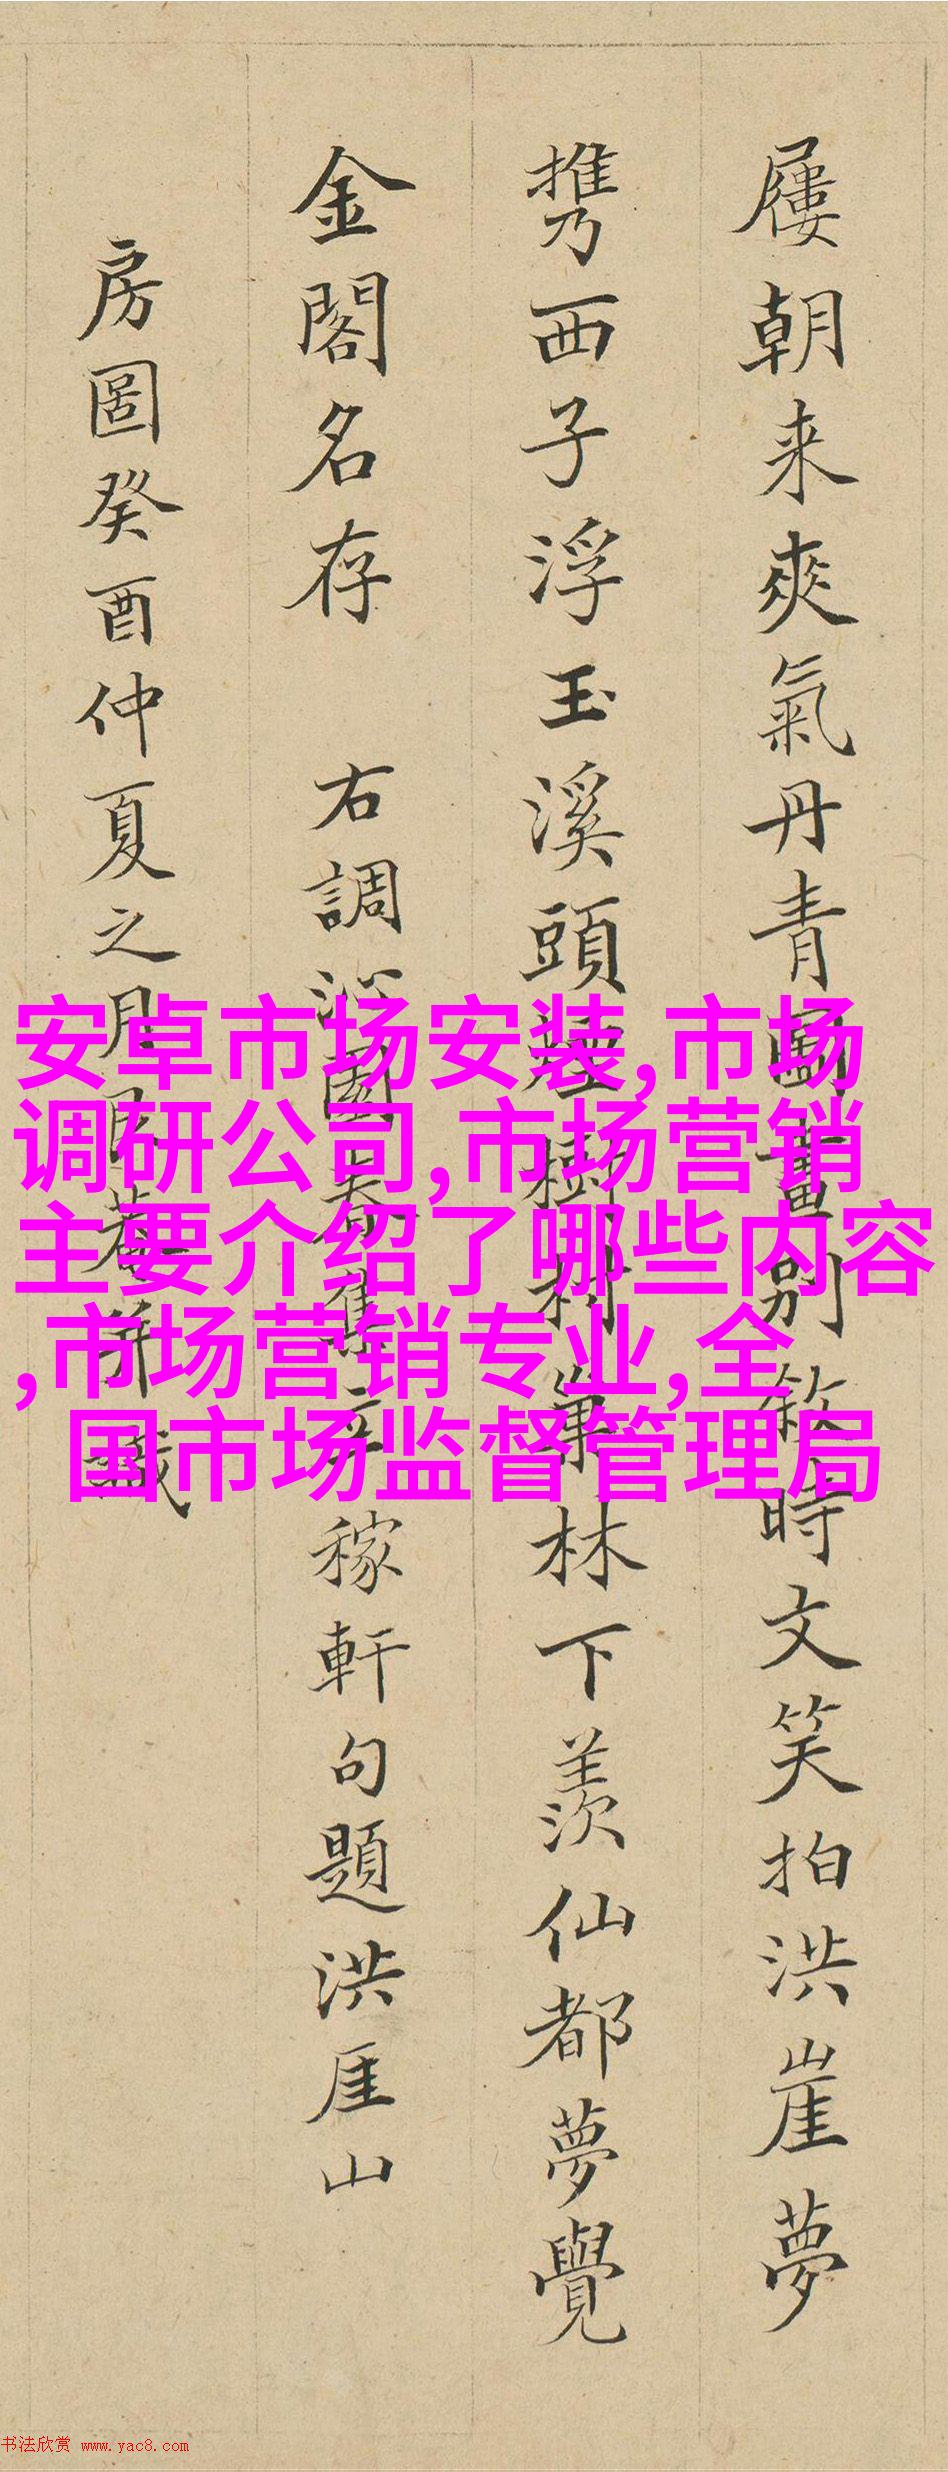 屨朝来爽氣丹青圖畫別敘時文笑拍洪崖夢
携西子浮玉溪頭煙樹村巢林下羨仙都夢覺
金閣名存 右調沁園春集辛稼軒句題洪厓山
房圖癸酉仲夏之月 民菴并識
安卓市场安装,市场
调研公司,市场营销
主要介绍了哪些内容
,市场营销专业,全
国市场监督管理局
书法欣赏 www.yac8.com